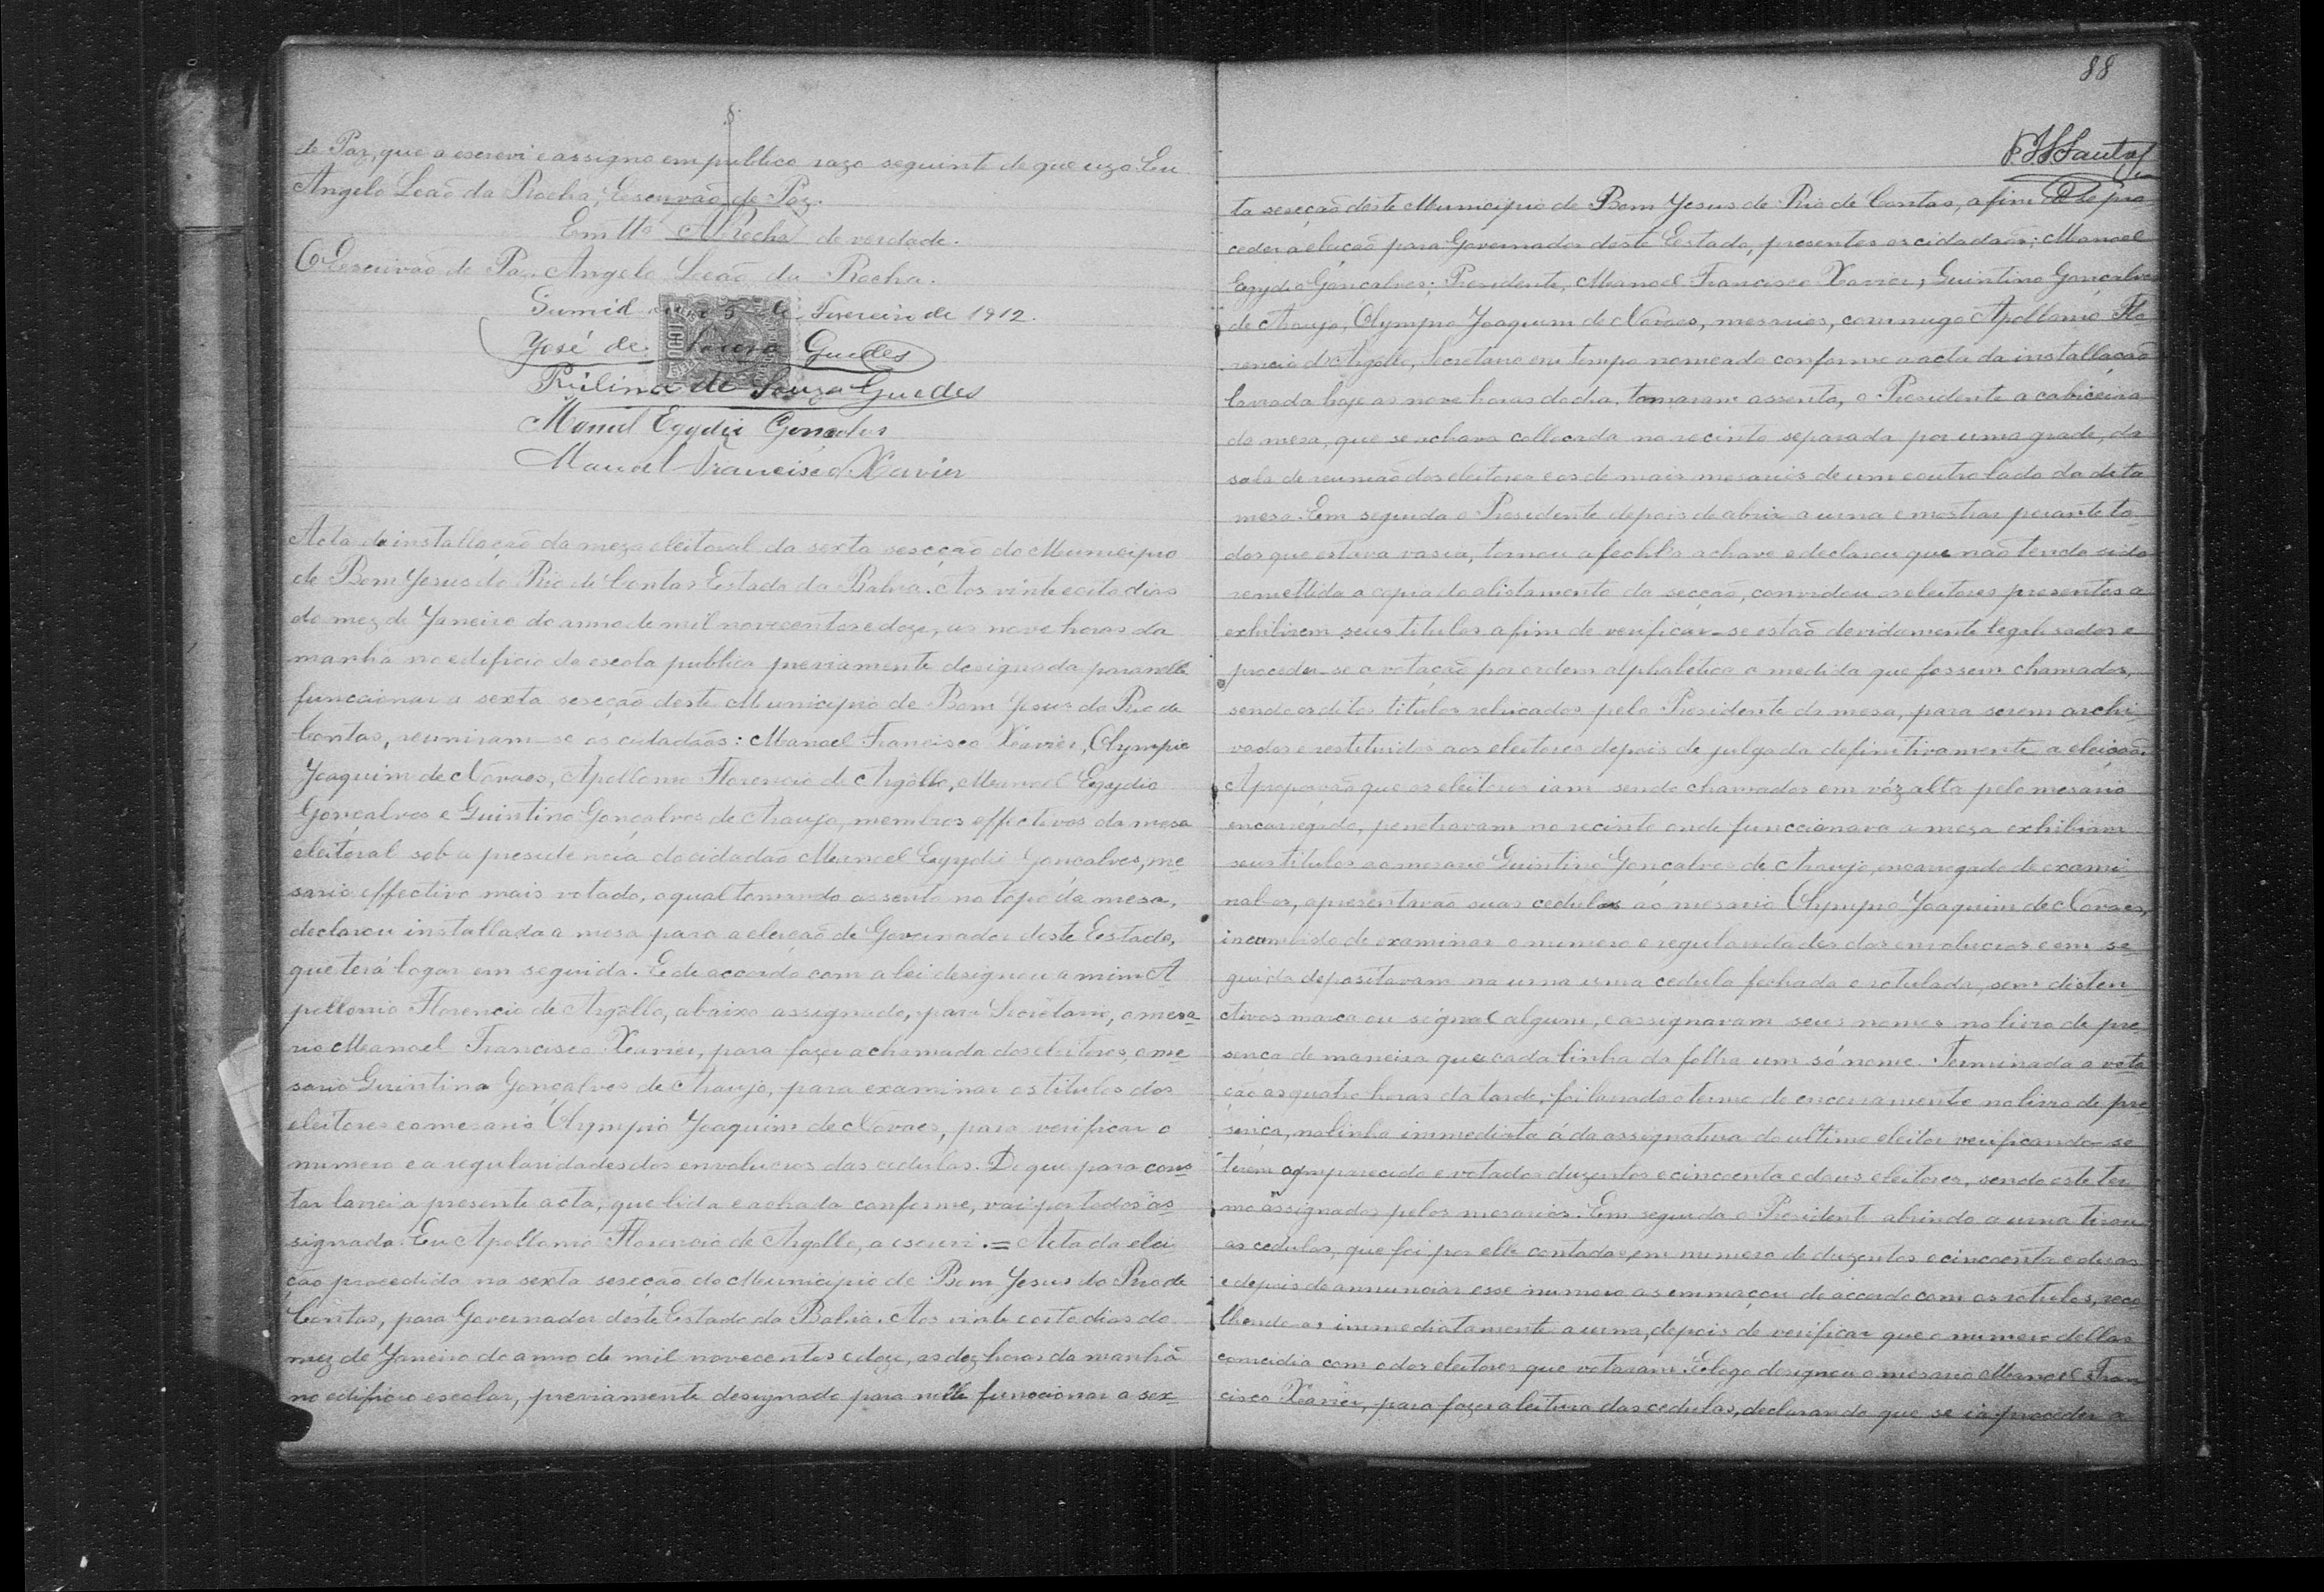 de Paz, que a escrevi e assigno em publico razo seguinte de que uzo. Eu
Angelo Leaõ da Rocha, Escrivaõ de Paz.
Em tto ARocha de verdade.
O Escrivaõ de Paz. Angelo Leaõ da Rocha.
5 de Fevereiro de 1912.
José de Souza Guedes
de Souza Guedes
Manoel Egydio Gonçalves
Manoel Francisco Xavier
Acta da installação da meza eleitoral da sexta sescção do Municipio
de Bom Jesus do Rio de Contas Estado da Bahia. Aos vinte e oito dias
do mez de Janeiro do anno de mil novecentos e doze, as nove horas da
manhã no edificio da escola publica previamente designada para nelle
funccionar a sexta sescção deste Municipio de Bom Jesus do Rio de
Contas, reuniram-se os cidadãos: Manoel Francisco Xavier, Olympio
Joaquim de Novaes, Apollonio Florencio de Argôllo, Manoel Egydio
Gonçalves e Quintino Gonçalves de Araujo, membros effectivos da mesa
eleitoral sob a presidencia do cidadão Manoel Egydio Gonçalves, me-
sario effectivo mais votado, o qual tomando assento no tópo da mesa,
declarou installada a mesa para a eleição de Governador deste Estado,
que terá logar em seguida. E de accordo com a lei designou a mim A
pollonio Florencio de Argôllo, abaixo assignado, para Secretario, o mesa-
rio Manoel Francisco Xavier, para fazer a chamada dos eleitores, o me
sario Quintino Gonçalves de Araujo, para examinar os titulos dos
eleitores e o mesario Olympio Joaquim de Novaes, para verificar o
numero e a regularidades dos envolucros das cedulas. De que para cons-
tar lavrei a presente acta, que lida e achada conforme, vai por todos as-
signada. Eu Apollonio Florencio de Argollo, a escrevi. = Acta da elei
ção procedida na sexta sescção do Municipio de Bom Jesus do Rio de
Contas, para Governador deste Estado da Bahia. Aos vinte e oito dias do
mez de Janeiro do anno de mil novecentos e doze, as dez horas da manhã
no edificio escolar, previamente designado para nelle funccionar a sex-
88
ta sescção deste Municipio de Bom Jesus do Rio de Contas, a fim de se pro-
ceder a eleição para Governador deste Estado, presentes os cidadãos: Manoel
Egydio Gonçalves; Presidente, Manoel Francisco Xavier, Quintino Gonçalves
de Araujo, Olympio Joaquim de Novaes, mesarios, commigo Apollonio Flo
rencio d'Argollo, Secretario em tempo nomeado conforme a acta da installação
lavrada hoje as nove horas do dia, tomaram assento, o Presidente a cabiceira
da mesa, que se achava collocada no recinto separada por uma grade, da
sala de reunião dos eleitores e os de mais mesarios de um e outro lado da dita
mesa. Em seguida o Presidente depois de abrir a urna e mostrar perante to-
dos que estava vasia, tornou a fechl-a a chave e declarou que não tendo sido
remettida a copia do alistamento da secção, convidou os eleitores presentes a
exhibirem seus titulos a fim de verificar-se estão devidamente legalisados e
proceder-se a votação por ordem alphabetica a medida que fossem chamados,
sendo os ditos titulos rebricados pelo Presidente da mesa, para serem archi-
vados e restituidos aos eleitores depois de julgada definitivamente a eleição.
A proporsão que os eleitores iam sendo chamados em vóz alta pelo mesario
encarregado, penetravam no recinto onde funccionava a mesa exhibiam
seus titulos ao mesario Quintino Gonçalves de Araujo, encarregado de exami-
nal-os, apresentarão suas cedulas ao mesario Olympio Joaquim de Novaes,
incumbido de examinar o numero e regularidades dos envolucros e em se-
guida depositavam na urna uma cedula fechada e rotulada, sem disten-
ctivos marca ou signal algum, e assignavam seus nomes no livro de pre
sença de maneira que cada linha da folha um só nome. Terminada a vota
ção as quatro horas da tarde, foi lavrado o termo de encerramento no livro de pre
sença, na linha immediata á da assignatura do ultimo eleitor verificando-se
terem comparecido e votados duzentos e cincoenta e dous eleitores, sendo este ter
mo assignados pelos mesarios. Em seguida o Presidente abrindo a urna tirou
as cedulas, que foi por elle contadas, em numero de duzentos e cincoenta e duas
e depois de annunciar esse numero as emmaçou de accordo com os rotulos, reco
lhendo-as immediatamente a urna, depois de verificar que o numero dellas
comcidia com o dos eleitores que votaram. E logo designou o mesario Manoel Fran
cisco Xavier, para fazer a leitura das cedulas, declarando que se ia proceder a